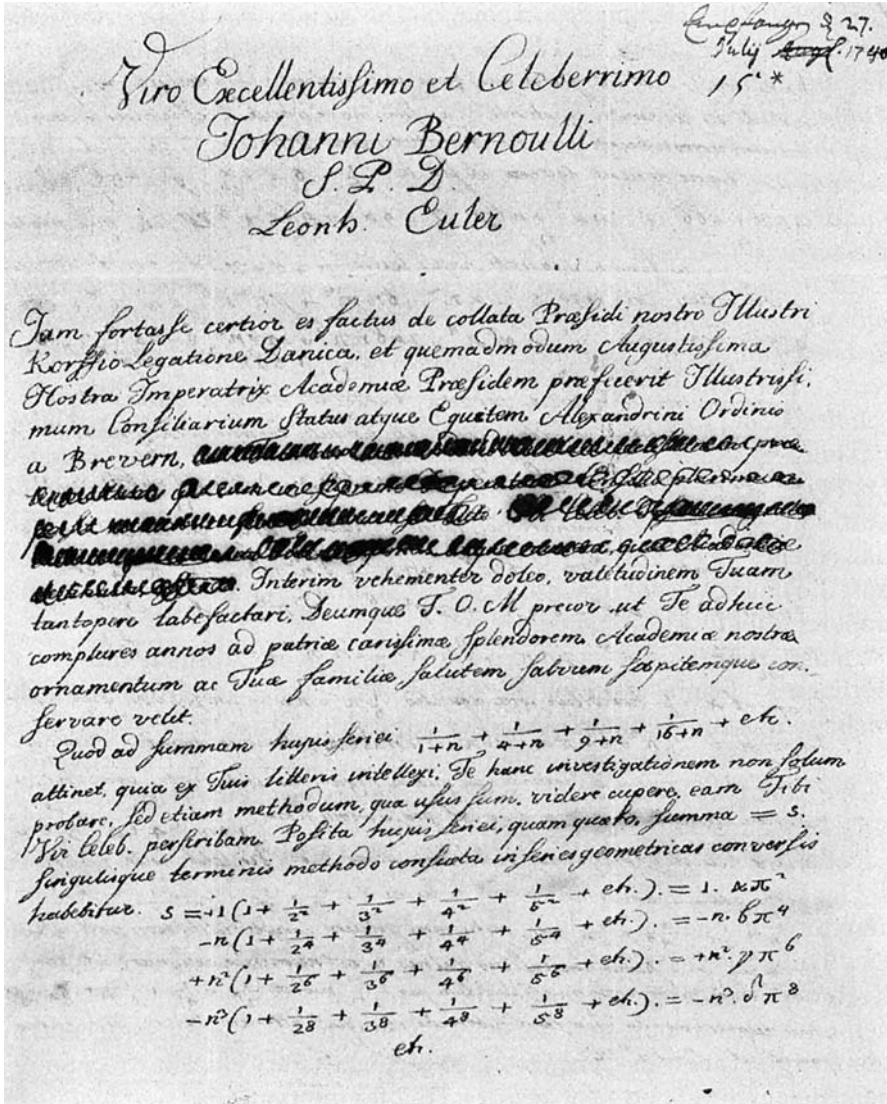 Empfangen d 27.
Julij Aug. 1740
15 *
Viro Excellentissimo et Celeberrimo
Johanni Bernoulli
S. P. D
Leonh. Euler
Jam fortasse certior es factus de collata Præsidi nostro Illustri
Korffio Legatione Danica, et quemadmodum Augustissima
Nostra Imperatrix Academiæ Præsidem præfecerit Illustrissi-
mum Consiliarium Status atque Equitem Alexandrini Ordinis
a Brevern,
Interim vehementer doleo, valetudinem Tuam
tantopere labefactari, Deumque T. O. M precor ut Te adhuc
complures annos ad patriæ carissimæ splendorem Academiæ nostræ
ornamentum ac Tuæ familiæ salutem salvum sospitemque con-
servare velit.
Quod ad summam hujus seriei 1/(1+n) + 1/(4+n) + 1/(9+n) + 1/(16+n) + etc.
attinet, quia ex Tuis litteris intellexi, Te hanc investigationem non solum
probare, sed etiam methodum, qua usus sum, videre cupere, eam Tibi
Vir Celeb. perscribam. Posita hujus seriei, quam quæro, summa = s.
singulisque terminis methodo consueta in series geometricas conversis
habebitur. s = +1(1 + 1/2² + 1/3² + 1/4² + 1/5² + etc.). = 1. απ²
−n(1 + 1/2⁴ + 1/3⁴ + 1/4⁴ + 1/5⁴ + etc.). = −n. βπ⁴
+n²(1 + 1/2⁶ + 1/3⁶ + 1/4⁶ + 1/5⁶ + etc.). = +n². γπ⁶
−n³(1 + 1/2⁸ + 1/3⁸ + 1/4⁸ + 1/5⁸ + etc.). = −n³. δπ⁸
etc.